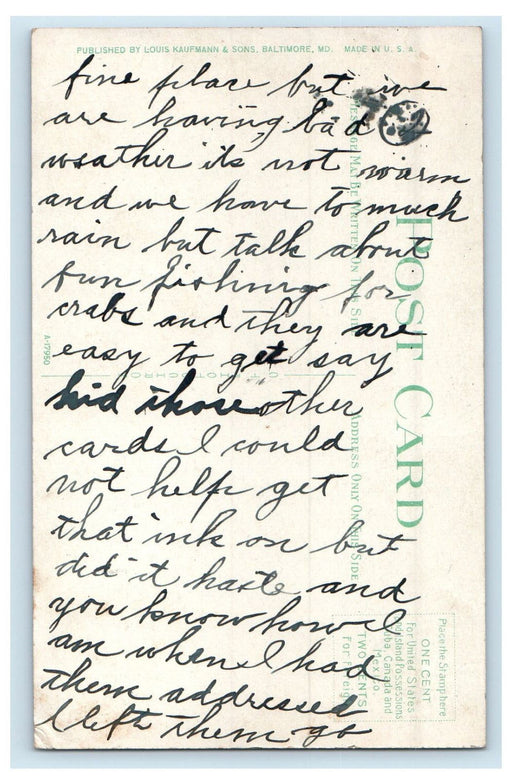 PUBLISHED BY LOUIS KAUFMANN & SONS, BALTIMORE, MD. MADE IN U. S. A.
fine place but we
are having bad
weather its not warm
and we have to much
rain but talk about
fun fishing for
crabs and they are
easy to get say
kid those other
cards I could
not help get
that ink on but
did it haste and
you know how I
am when I had
them addressed
I left them go
POST CARD
ADDRESS ONLY ON THIS SIDE
A-17950
Place the Stamp here
ONE CENT
For United States
and Island Possessions
Cuba, Canada and
Mexico.
TWO CENTS
For Foreign